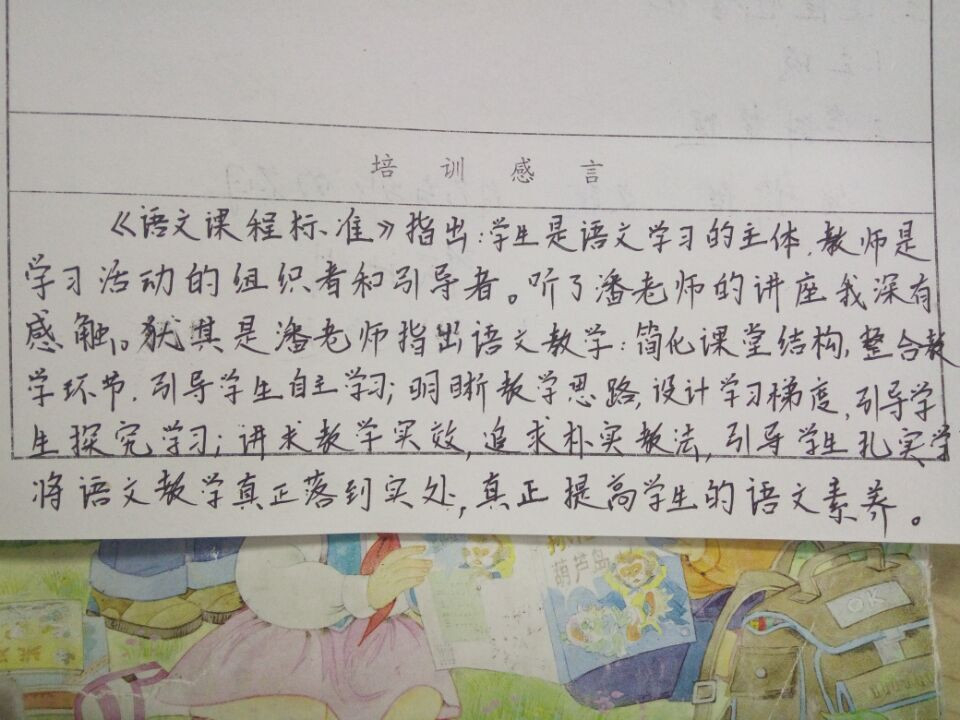 培训感言
《语文课程标准》指出:学生是语文学习的主体,教师是
学习活动的组织者和引导者。听了潘老师的讲座我深有
感触。犹其是潘老师指出语文教学:简化课堂结构,整合教
学环节,引导学生自主学习;明晰教学思路,设计学习梯度,引导学
生探究学习;讲求教学实效,追求朴实教法,引导学生扎实学
将语文教学真正落到实处,真正提高学生的语文素养。
葫芦岛
OK